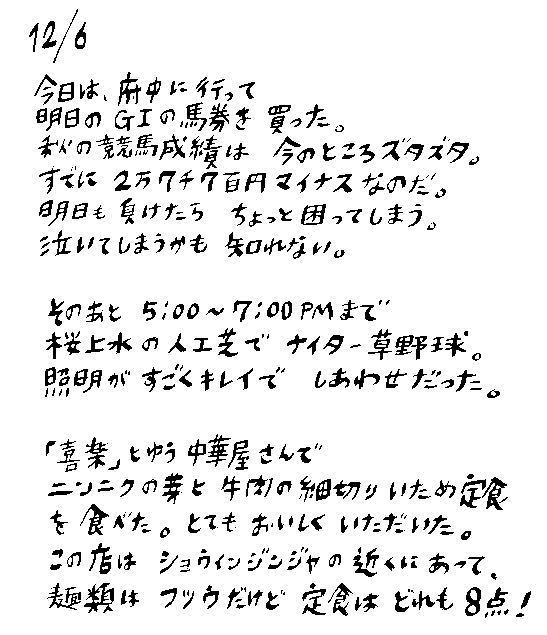 12/6
今日は、府中に行って
明日のGIの馬券を買った。
秋の競馬成績は 今のところズタズタ。
すでに 2万7千7百円マイナスなのだ。
明日も負けたら ちょっと困ってしまう。
泣いてしまうかも知れない。
そのあと 5:00〜7:00PMまで
桜上水の人工芝で ナイター草野球。
照明がすごくキレイで しあわせだった。
「喜楽」とゆう中華屋さんで
ニンニクの芽と牛肉の細切りいため定食
を食べた。とてもおいしくいただいた。
この店は ショウインジンジャの近くにあって、
麺類は フツウだけど 定食は どれも8点!